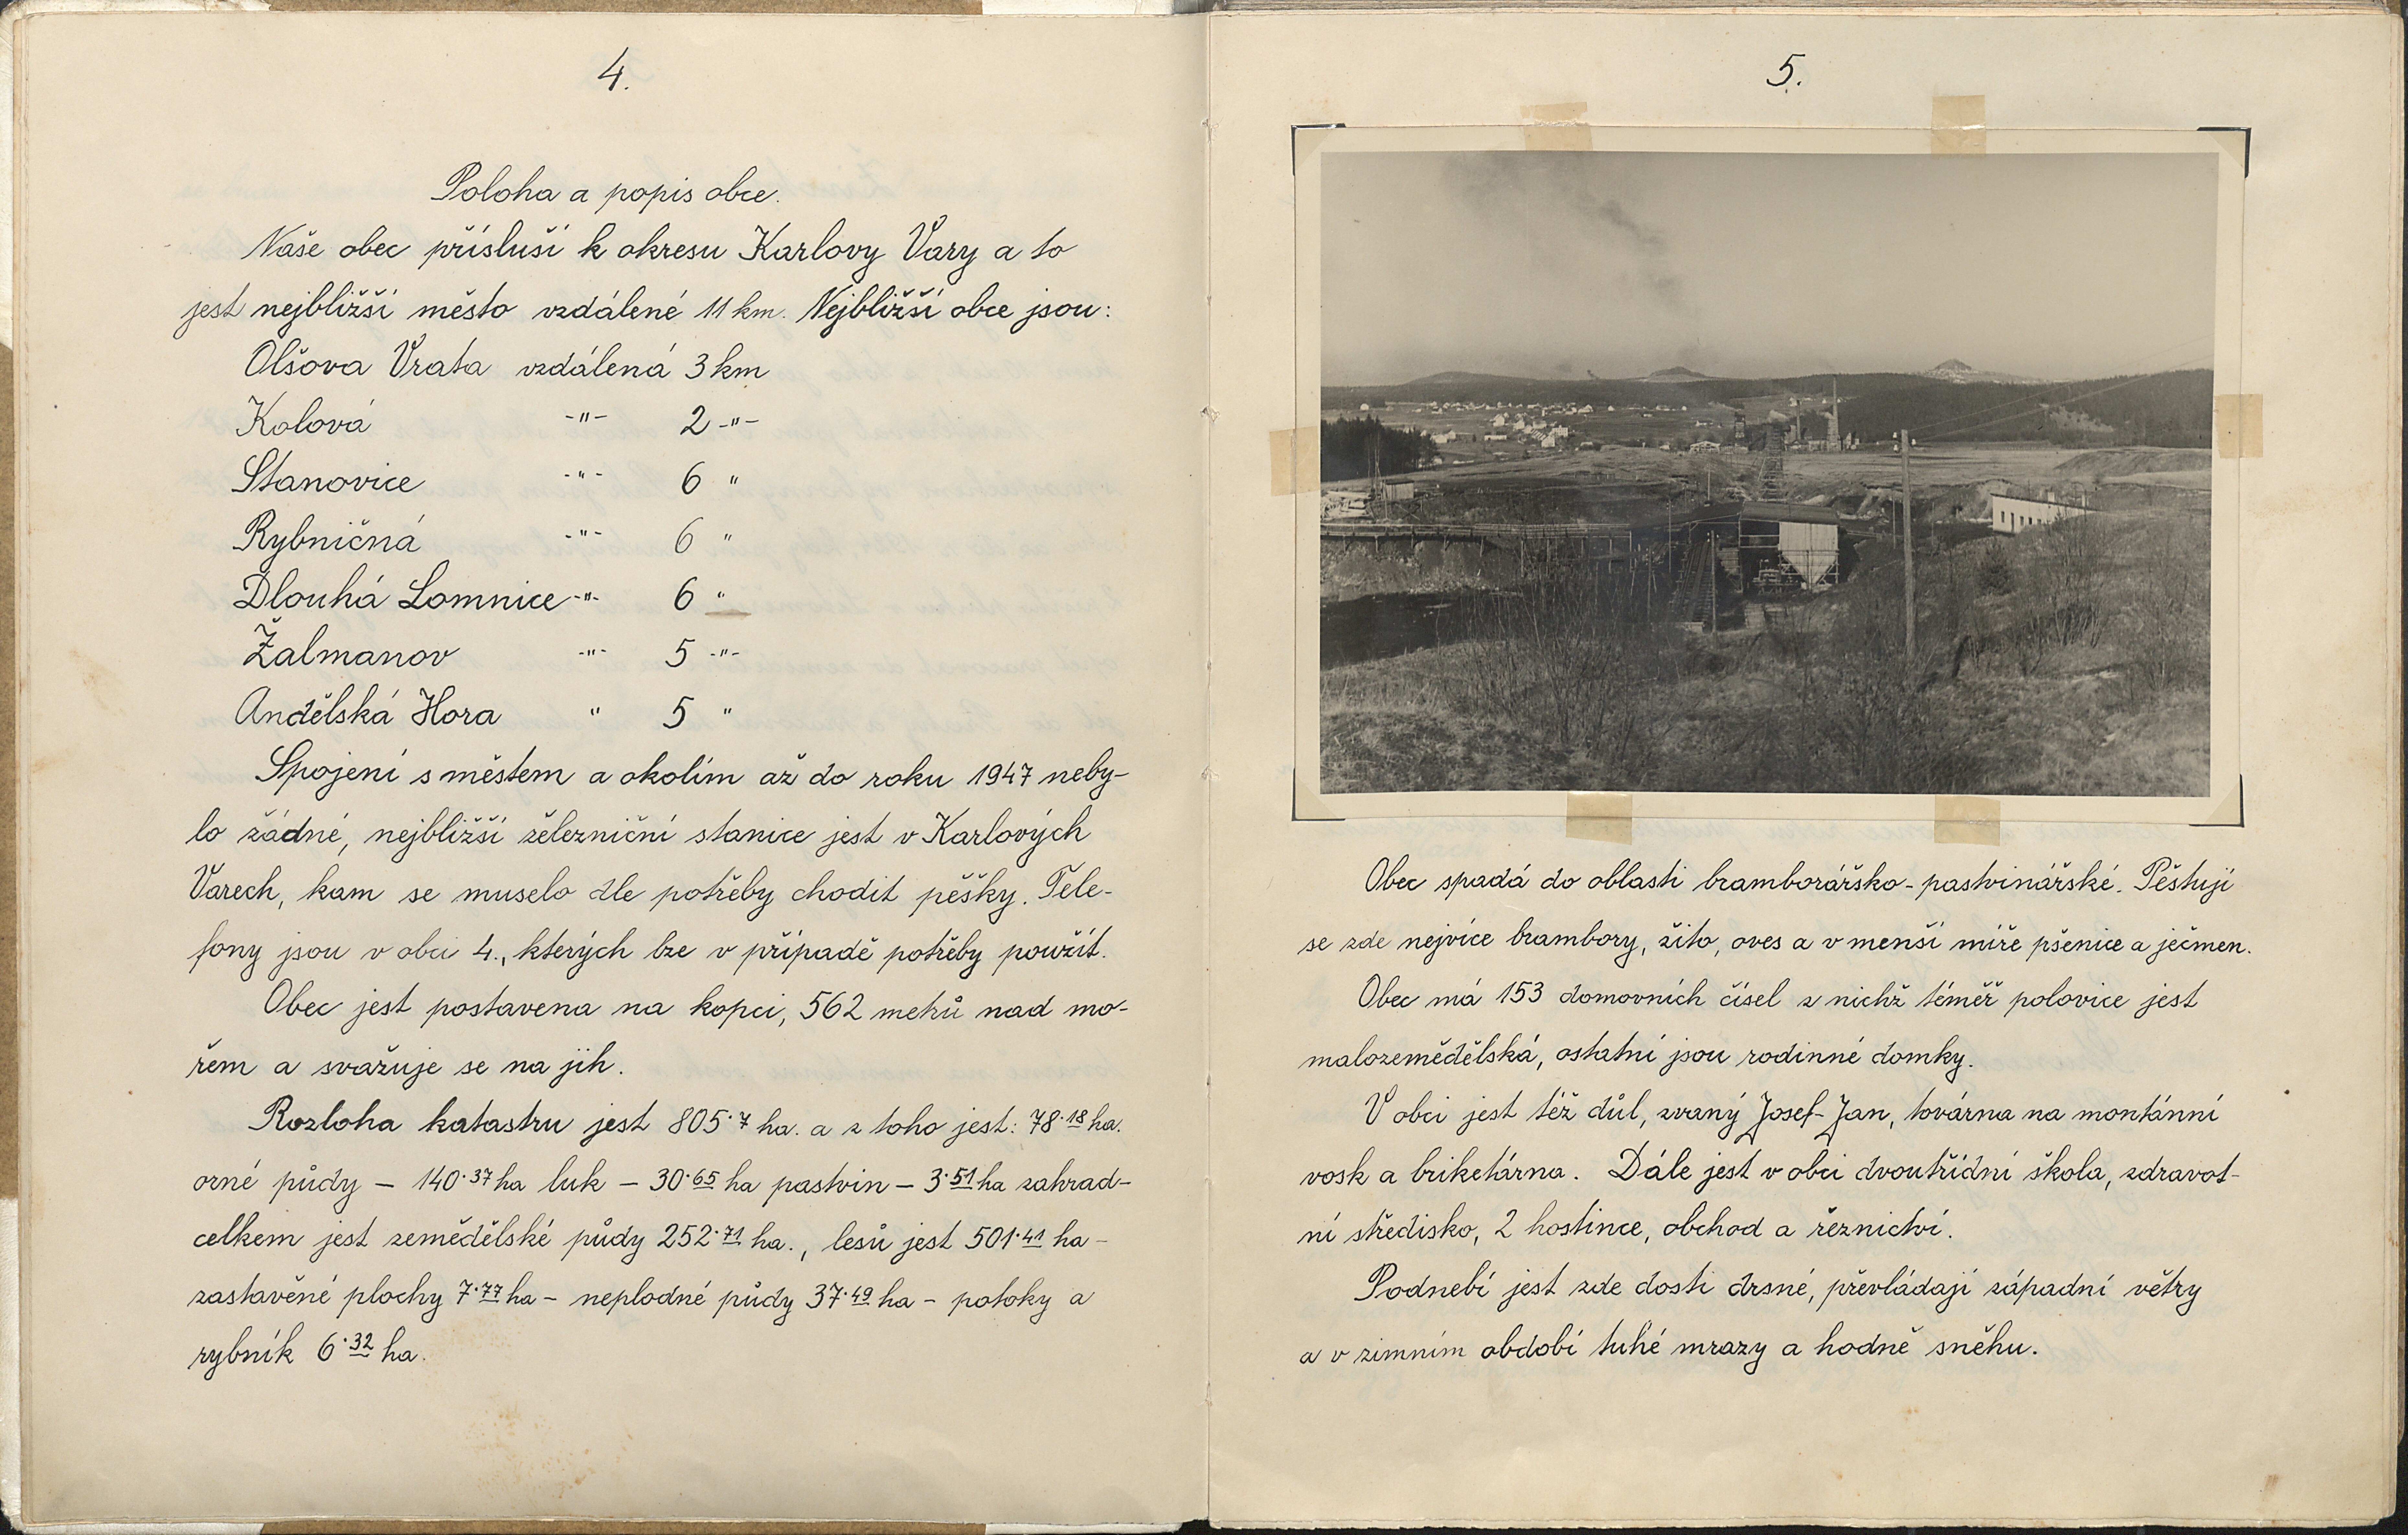 4.
Poloha a popis obce.
Naše obec přísluší k okresu Karlovy Vary a to
jest nejbližší město vzdálené 11 km. Nejbližší obce jsou:
Olšova Vrata vzdálená 3 km
Kolová -"- 2 -"-
Stanovice -"- 6 "
Rybničná -"- 6 "
Dlouhá Lomnice -"- 6 "
Žalmanov -"- 5 -"-
Andělská Hora " 5 "
Spojení s městem a okolím až do roku 1947 neby-
lo žádné, nejbližší železniční stanice jest v Karlových
Varech, kam se muselo dle potřeby chodit pěšky. Tele-
fony jsou v obci 4., kterých lze v případě potřeby použít.
Obec jest postavena na kopci, 562 metrů nad mo-
řem a svažuje se na jih.
Rozloha katastru jest 805·7 ha. a z toho jest: 78·18 ha.
orné půdy – 140·37 ha luk – 30·65 ha pastvin – 3·51 ha zahrad –
celkem jest zemědělské půdy 252·71 ha., lesů jest 501·41 ha –
zastavěné plochy 7·77 ha – neplodné půdy 37·49 ha – potoky a
rybník 6·32 ha.
5.
Obec spadá do oblasti bramborářsko-pastvinářské. Pěstují
se zde nejvíce brambory, žito, oves a v menší míře pšenice a ječmen.
Obec má 153 domovních čísel z nichž téměř polovice jest
malozemědělská, ostatní jsou rodinné domky.
V obci jest též důl, zvaný Josef-Jan, továrna na montánní
vosk a briketárna. Dále jest v obci dvoutřídní škola, zdravot-
ní středisko, 2 hostince, obchod a řeznictví.
Podnebí jest zde dosti drsné, převládají západní větry
a v zimním období tuhé mrazy a hodně sněhu.